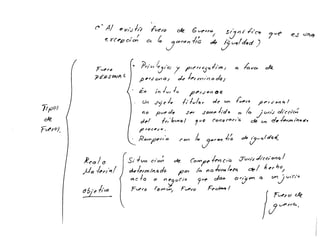 (* Al existir fuero de Guerra, significa que es una
excepción a la garantía de igualdad)
Tipos
de
Fueros
Fuero
personal
• Privilegios y prerrogativas, a favor de
personas determinadas
• En intuito personae
• Un sujeto titular de un fuero personal
no puede ser sometido a la jurisdicción
del tribunal que conocería de un determinado
proceso.
• Rompería con la garantía de igualdad.
Real o
Material
objetivo
Situación de Competencia Jurisdiccional
determinada por la naturaleza del hecho,
acto o negocio que dan origen a un juicio
Fuero Común, Fuero Federal
Fuero de
guerra.